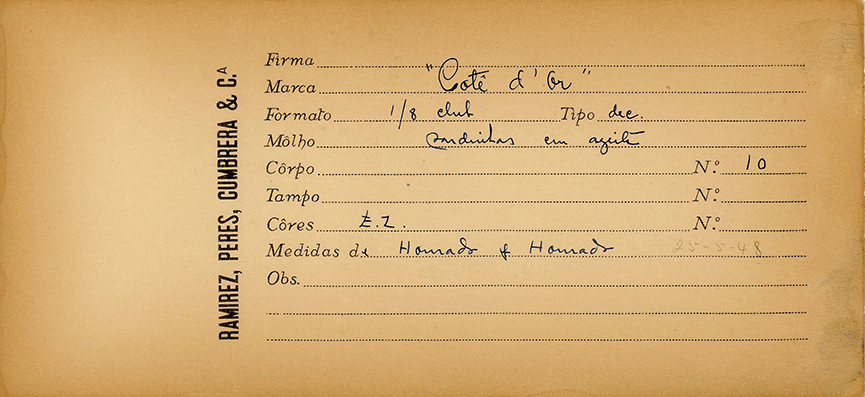 RAMIREZ, PERES, CUMBRERA & C.A
Firma
Marca "Coté d'Or"
Formato 1/8 club Tipo dec.
Môlho sardinhas em azeite
Côrpo N.º 10
Tampo N.º
Côres E.Z. N.º
Medidas de Honrado & Honrado 25-5-48
Obs.